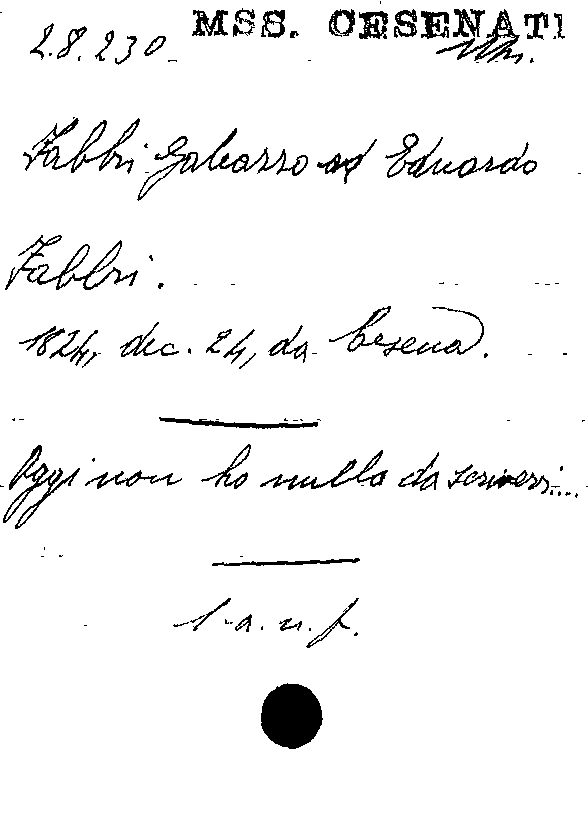 MSS. CESENATI
2.8.230
Fabbri Galeazzo ad Eduardo
Fabbri.
1824, dec. 24, da Cesena.
Oggi non ho nulla da scriverti....
1. a. n. f.